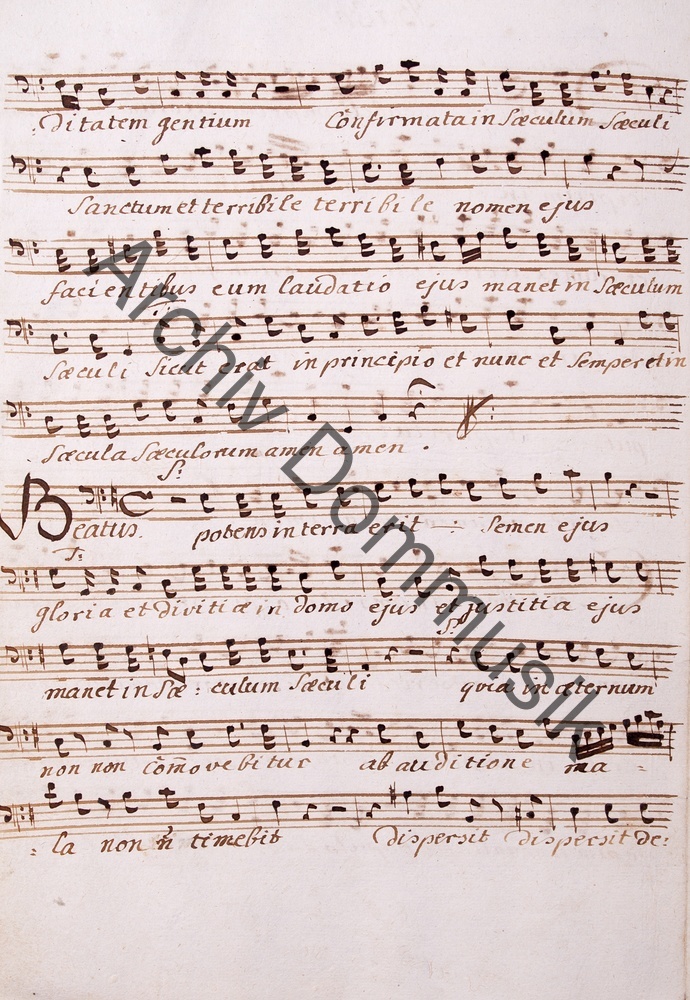 : ditatem gentium Confirmata in Sæculum Sæculi
Sanctum et terribile terribile nomen ejus
facientibus eum laudatio ejus manet in Sæculum
Sæculi Sicut erat in principio et nunc et Semper et in
Sæcula Sæculorum amen amen .
S:
Beatus. potens in terra erit Semen ejus
T:
gloria et divitiæ in domo ejus et justitia ejus
manet in Sæ : culum Sæculi quia in æternum
non non Com̃ovebitur ab auditione ma =
: la non n̄ timebit dispersit dispersit de:
Archiv Dommusik